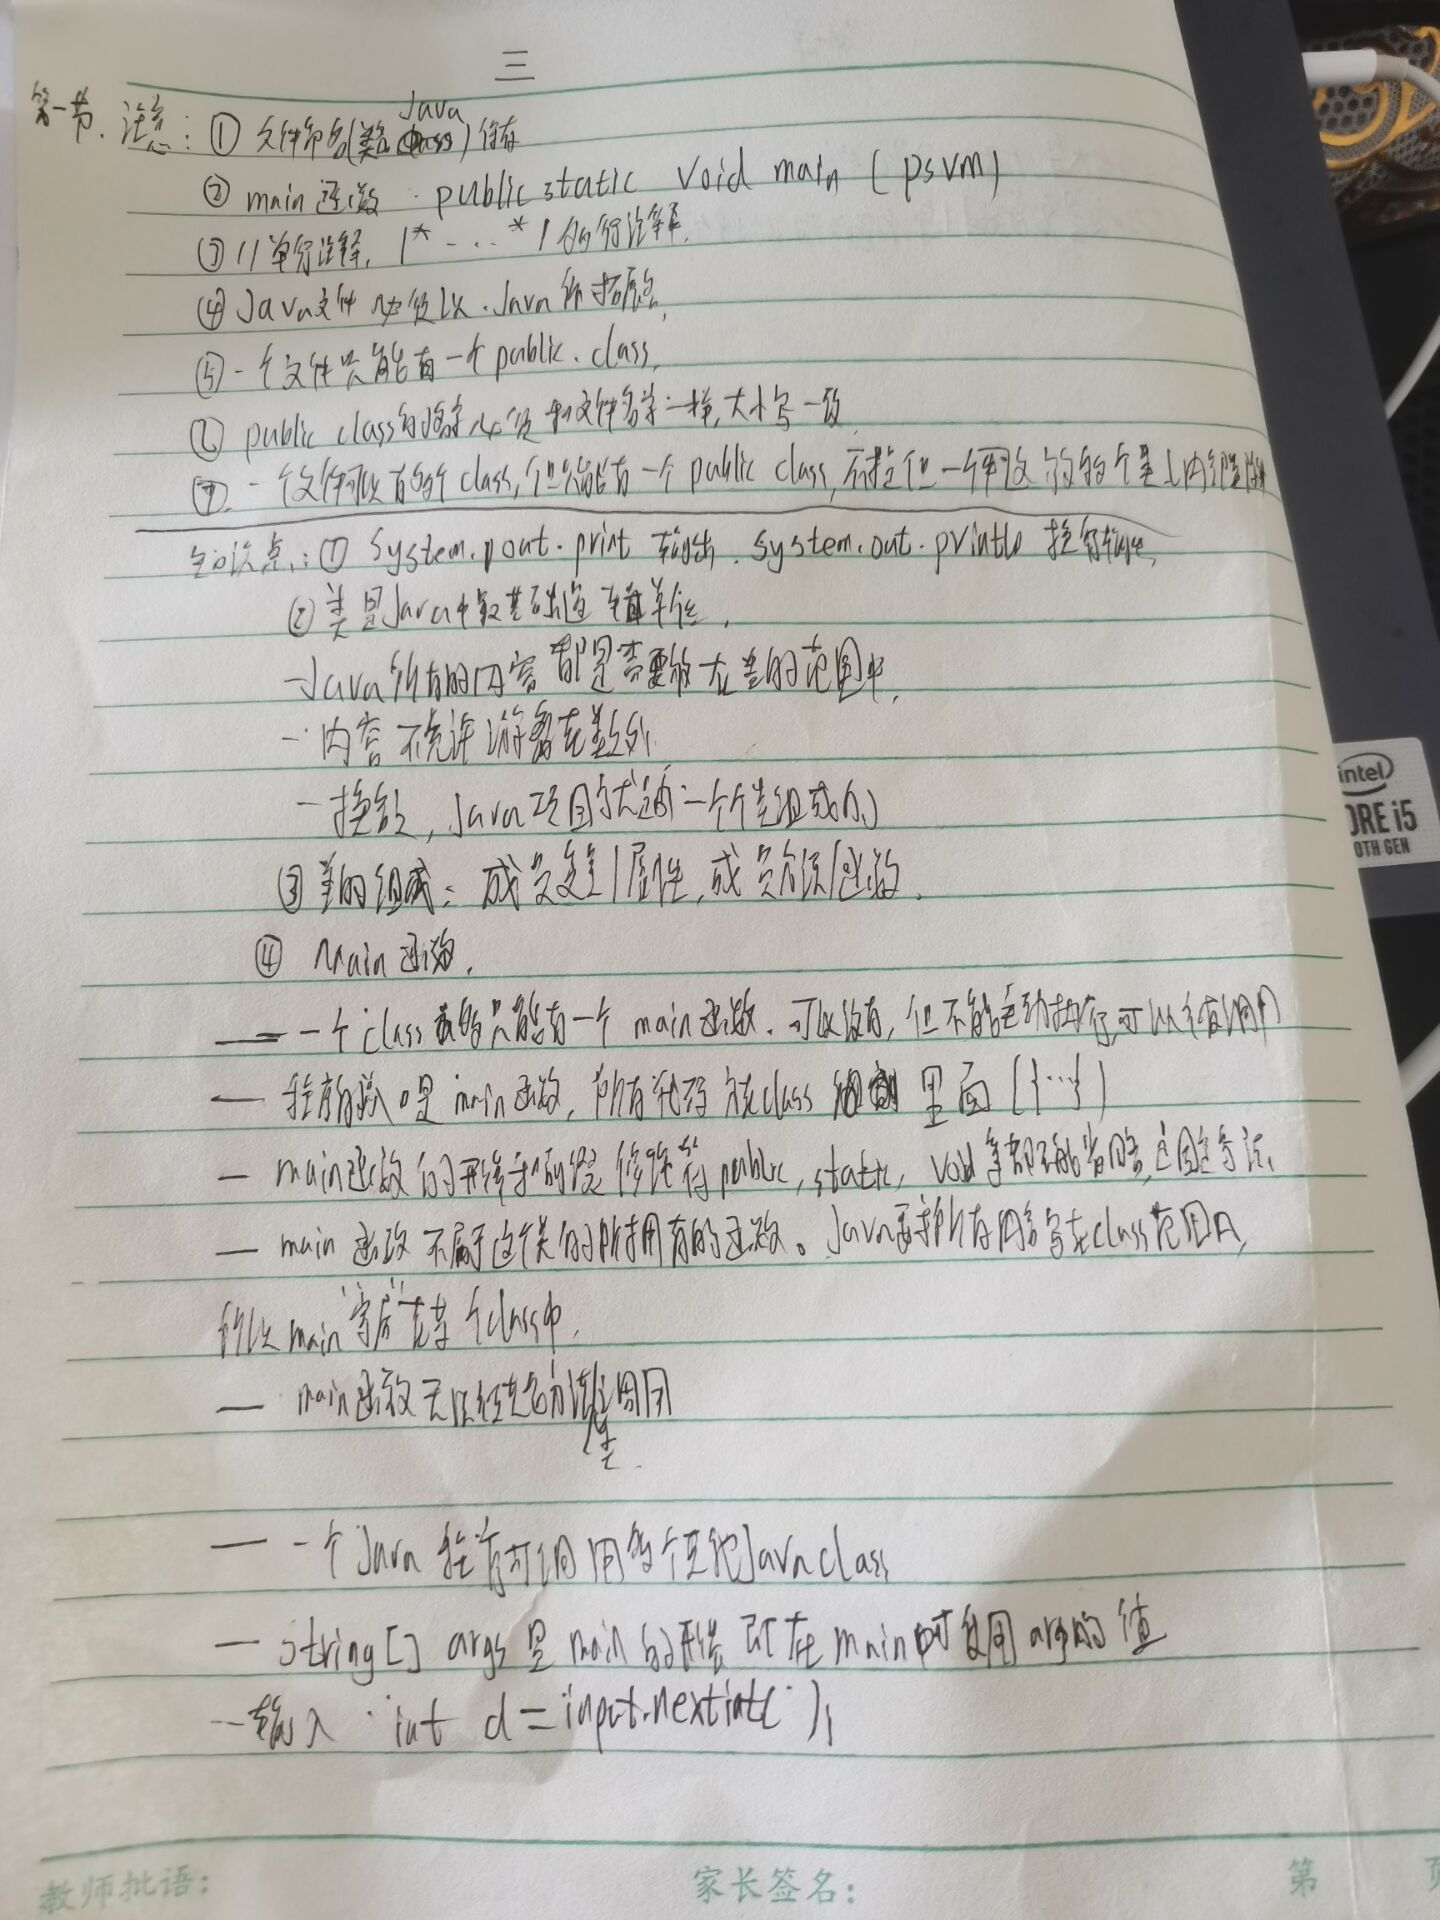 三
第一节. 注意: ① 文件命名(类名 Java) 保存
② main 函数 . public static void main (psvm)
③ // 单行注释, /* ... */ 多行注释.
④ Java文件必须以 .Java 作拓展名.
⑤ 一个文件只能有一个 public. class.
⑥ public class的名字必须和文件名字一样, 大小写一致.
⑦ 一个文件可以有多个 class, 但只能有一个 public class, 一个
知识点: ① System.out.print 输出. System.out.println 换行输出.
② 类是Java中最基础的逻辑单位.
-Java 所有的内容都是需要放在类的范围中.
- 内容不允许游离在类外.
- 换句, Java项目就是由一个个类组成的
③ 类的组成: 成员变量/属性, 成员方法/函数.
④ main 函数.
— 一个class 最多只能有一个 main 函数. 可以没有, 但不能主动执行, 可以被调用
— 程序的入口是 main 函数, 所有代码在class 里面 {...}
— main函数的形参和前缀修饰符 public, static, void 等都不能省略, 固定写法.
— main 函数不属于这个类的所拥有的函数。Java要求所有内容写在class范围内,
所以 main "寄居" 在某个class中.
— main函数无法被其它方法/类调用
— 一个Java 程序可调用多个其他Java class
— String[] args 是 main 的形参 可在 main 时使用 args的值
—输入 . int d = input.nextint( );
intel
CORE i5
10TH GEN
教师批语: 家长签名: 第 页